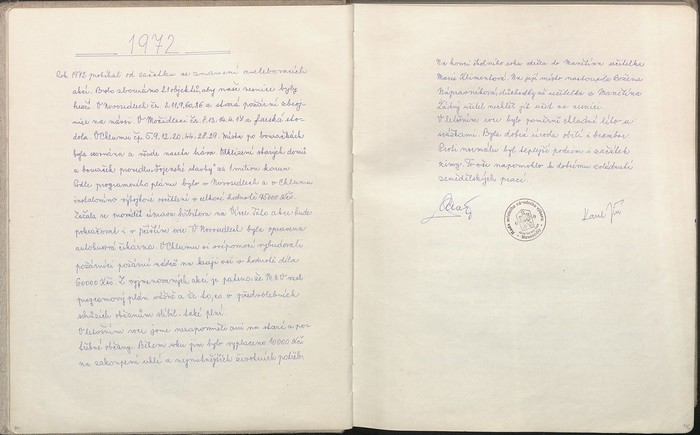 1972
Rok 1972 probíhal od začátku ve znamení aselebovacích
akcí. Bylo zbouráno 21 objektů, aby naše vesnice byly
hezčí V Novosedlech čp. 2, 11, 9, 60, 26 a stará požární zbroj-
nice na návsi. V Močidlech čp. 8, 13, a farská sto-
dola. V Chlumu čp. 5, 9, 12, 20, 44, 28, 29. Místa po bouračkách
byla srovnána a všude naseta tráva. Uklizení starých domů
a bouraček provedly "Vojenské stavby" za 1 milion korun
Podle programového plánu bylo v Novosedlech a v Chlumu
instalováno výbojkové osvětlení v celkové hodnotě 45000 Kčs.
Začala se provádět úprava hřbitova na Vrse tato akce bude
pokračovat i v příštím roce V Novosedlech byla opravena
autobusová čekárna. V Chlumu si svépomocí vybudovali
požárníci požární nádrž na kraji vsi v hodnotě díla
60000 Kčs. Z vyjmenovaných akcí je patrno, že M.N.V. vzal
programový plán vážně a že to, co v předvolebních
schůzích občanům slíbil, také plní.
V letošním roce jsme nezapomněli ani na staré a po-
třebné občany. Během roku jim bylo vyplaceno 10000 Kčs
na zakoupení uhlí a nejnutnějších životních potřeb.
Na konci školního roku odešla do Manětína učitelka
Marie Klimentová. Na její místo nastoupila Božena
Nápravníková, důchodkyně učitelka z Manětína
Žádný učitel nechtěl jít učit na vesnici
V letošním roce bylo poměrně chladné léto a
srážkami. Byla dobrá úroda obilí i brambor
Proti normálu byl teplejší podzim i začátek
zimy. To vše napomohlo k dobrému zvládnutí
zemědělských prací.
Rada místního národního výboru